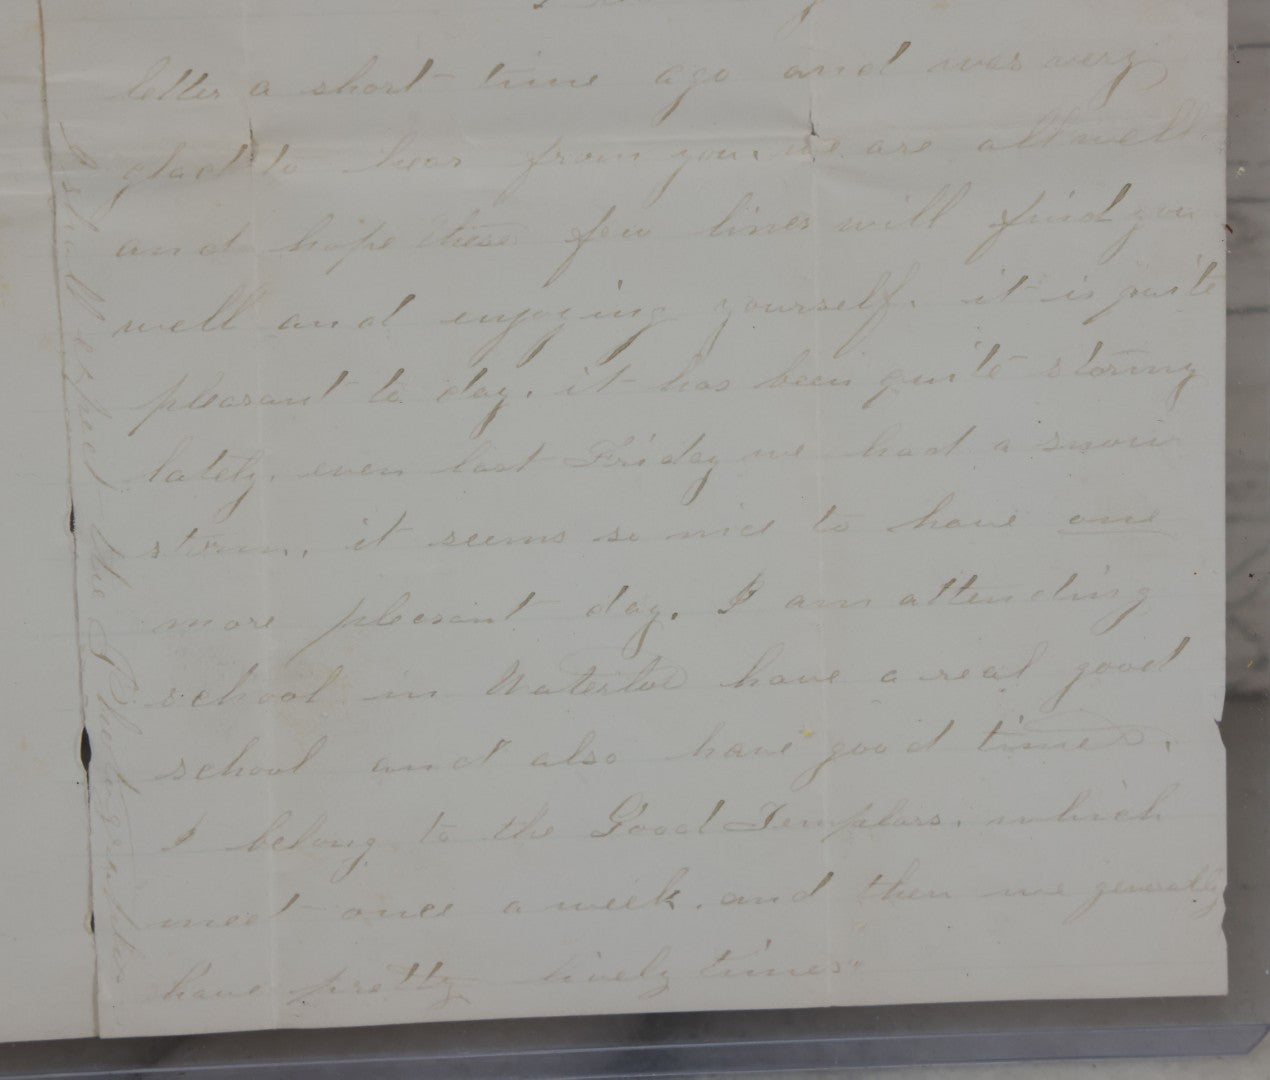 letter a short time ago and was very
glad to hear from you. we are all well.
and hope these few lines will find you
well and enjoying yourself. it is quite
pleasant to day. it has been quite stormy
lately. even last Friday we had a snow
storm. it seems so nice to have one
more pleasant day. I am attending
school in Waterloo have a real good
school and also have good times.
I belong to the Good Templars. which
meet once a week. and then we generally
have pretty lively times
I shall expect the Photograph